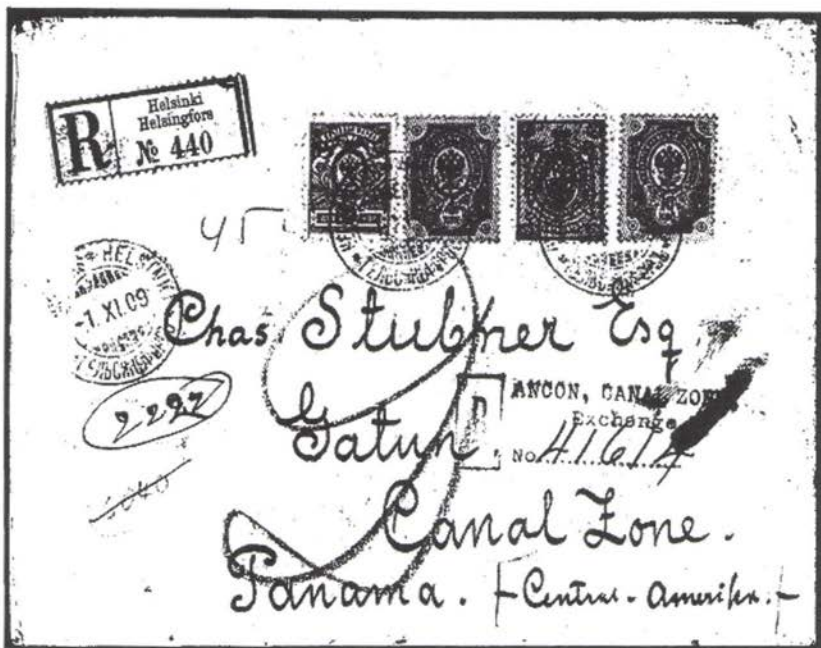 R
Helsinki
Helsingfors
№ 440
45
HELSINKI
-1.XI.09
Chas Stubner Esq
2297
ANCON, CANAL ZONE
Exchange
No. 41614
Gatun
Canal Zone.
Panama. Central-Amerika.